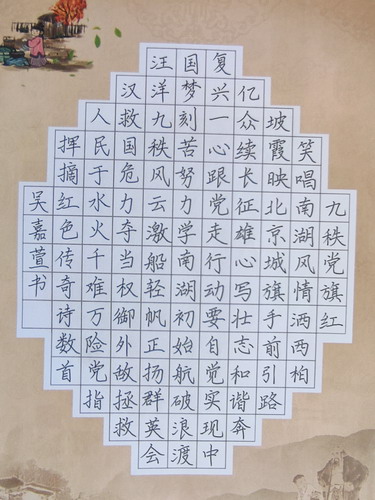 九秩党旗红
笑唱南湖风情洒西柏
坡霞映北京城旗手前引路
亿众续长征雄心写壮志和谐奔
复兴一心跟党走行动要自觉实现中
国梦刻苦努力学南湖初始航破浪渡
汪洋九秩风云激船轻帆正扬群英会
汉救国危力夺当权御外敌拯救
人民于水火千难万险党指
挥摘红色传奇诗数首
吴嘉萱书